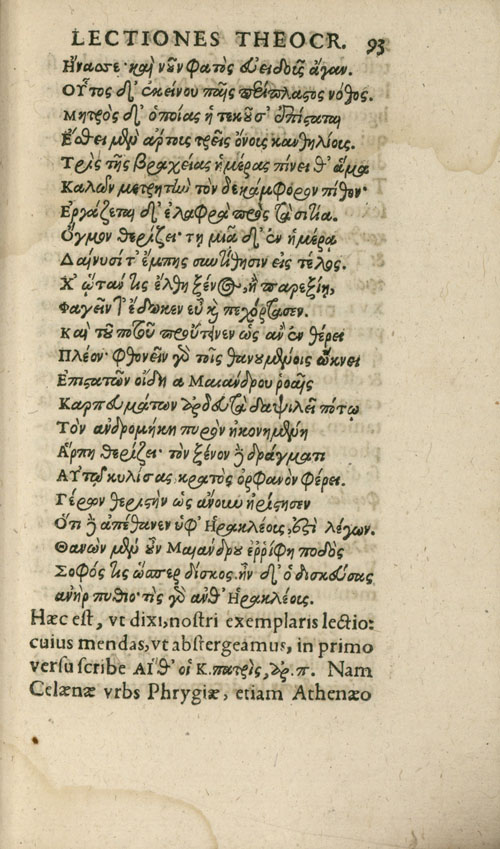 LECTIONES THEOCR. 93
Ηναστε· καὶ νῦν φατὸς ευειδοῖς ἄγαν.
Οὗτος δ' ἐκείνου παῖς περίπλαστος νόθος.
Μητρὸς δ' ὁποίας ἡ τεκοῦσ' ἐπίσταται
Εσθει μὲν ἄρτοις τρεῖς ὄνοις κανθηλίοις.
Τρὶς τῆς βραχείας ἡμέρας πίνει θ' ἅμα
Καλῶν μετρητὴν τὸν δεκάμφορον πίθον·
Εργάζεται δ' ἐλαφρὰ πρὸς τὰ σιτία.
Ογμον θερίζει· τῃ μιᾷ δ' ἐν ἡμέρᾳ
Δαινυσίτ' ἔμπης συντίθησιν εἰς τέλος.
Χ' ὥταν τις ἔλθη ξένος, ἢ παρεξίη,
Φαγεῖν τ' ἔδωκεν εὖ κ πεχόρτασεν.
Καὶ τοῦ ποτοῦ προὔτεινεν ὡς ἂν ἐν θέρει
Πλέον· φθονεῖν γὸ τοῖς θανουμένοις ὤκνει
Επιστατῶν οἴδη α Μαιάνδρου ῥοαῖς
Καρπευμάτων ἀρδευτὰ δαψιλεῖ πότῳ
Τὸν ανδρομήκη πυρὸν ἠκονημένη
Αρπη θερίζει· τὸν ξένον δὲ δράγματι
Αὐτῷ κυλίσας κρατὸς ὀρφανὸν φέρει.
Γέρων θεριστὴν ὡς ἄνουν ἠρίστησεν
Ὅτι δὲ ἀπέθανεν ὑφ' Ηρακλέοις, ἐστὶ λέγων.
Θανὼν μὲν οὖν Μαιάνδρου ἐῤῥίφη ποδὸς
Σοφός τις ὥσπερ δίσκος. ἦν δ' ὁ δισκεύσας
ανὴρ πυθιο· τίς γὸ ἀνθ' Ηρακλέοις.
Hæc est, vt dixi, nostri exemplaris lectio:
cuius mendas, vt abstergeamus, in primo
versu scribe ΑἾ θ' οἱ Κ. πατρὶς, ἀρ. π. Nam
Celænæ vrbs Phrygiæ, etiam Athenæo